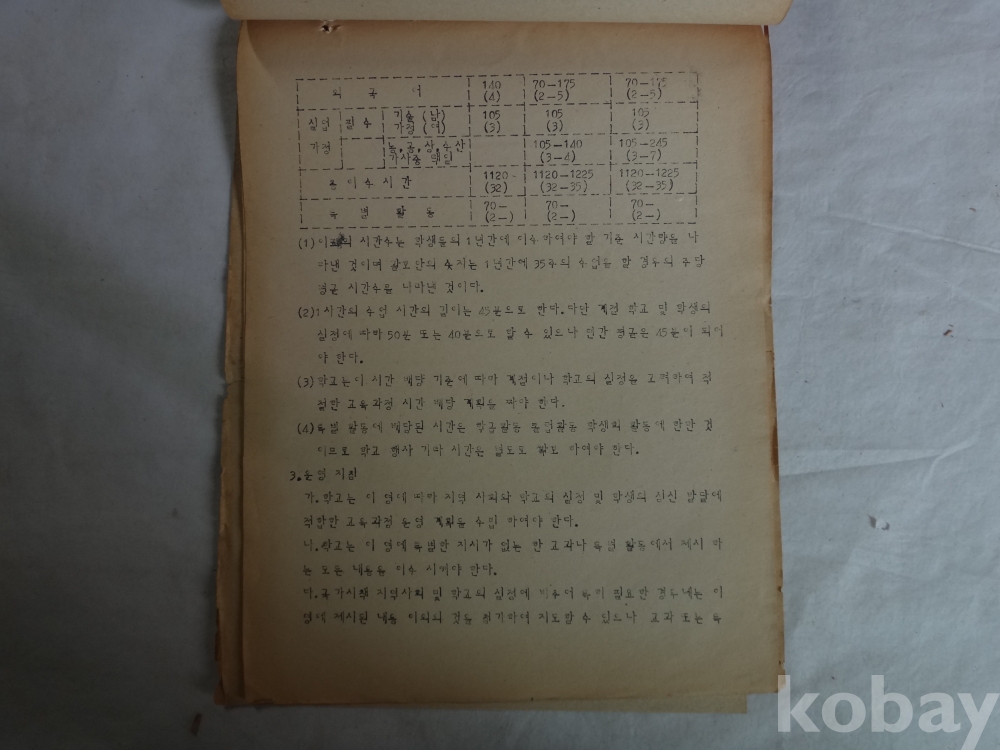 외 국 어 140 70-175 70-175
(4) (2-5) (2-5)
실업 필수 기술 (남) 105 105 105
가정 (여) (3) (3) (3)
가정 농,공,상,수산 105-140 105-245
가사중 택일 (3-4) (3-7)
총 이 수 시 간 1120- 1120-1225 1120-1225
(32) (32-35) (32-35)
특 별 활 동 70- 70- 70-
(2-) (2-) (2-)
(1) 이 표의 시간수는 학생들의 1년간에 이수 하여야 할 기준 시간량을 나
타낸 것이며 괄호안의 숫자는 1년간에 35주의 수업을 할 경우의 주당
평균 시간수를 나타낸 것이다.
(2) 1시간의 수업 시간의 길이는 45분으로 한다. 다만 계절 학교 및 학생의
실정에 따라 50분 또는 40분으로 할 수 있으나 연간 평균은 45분이 되어
야 한다.
(3) 학교는 이 시간 배당 기준에 따라 계절이나 학교의 실정을 고려하여 적
절한 교육과정 시간 배당 계획을 짜야 한다.
(4) 특별 활동에 배당된 시간은 학급활동 클럽활동 학생회 활동에 한한 것
이므로 학교 행사 기타 시간은 별도로 확보 하여야 한다.
3. 운영 지침
가. 학교는 이 영에 따라 지역 사회와 학교의 실정 및 학생의 심신 발달에
적합한 교육과정 운영 계획을 수립 하여야 한다.
나. 학교는 이 영에 특별한 지시가 없는 한 교과나 특별 활동에서 제시 하
는 모든 내용을 이수 시켜야 한다.
다. 국가시책 지역사회 및 학교의 실정에 비추어 특히 필요한 경우에는 이
영에 제시된 내용 이외의 것을 첨가하여 지도할 수 있으나 교과 또는 특
kobay